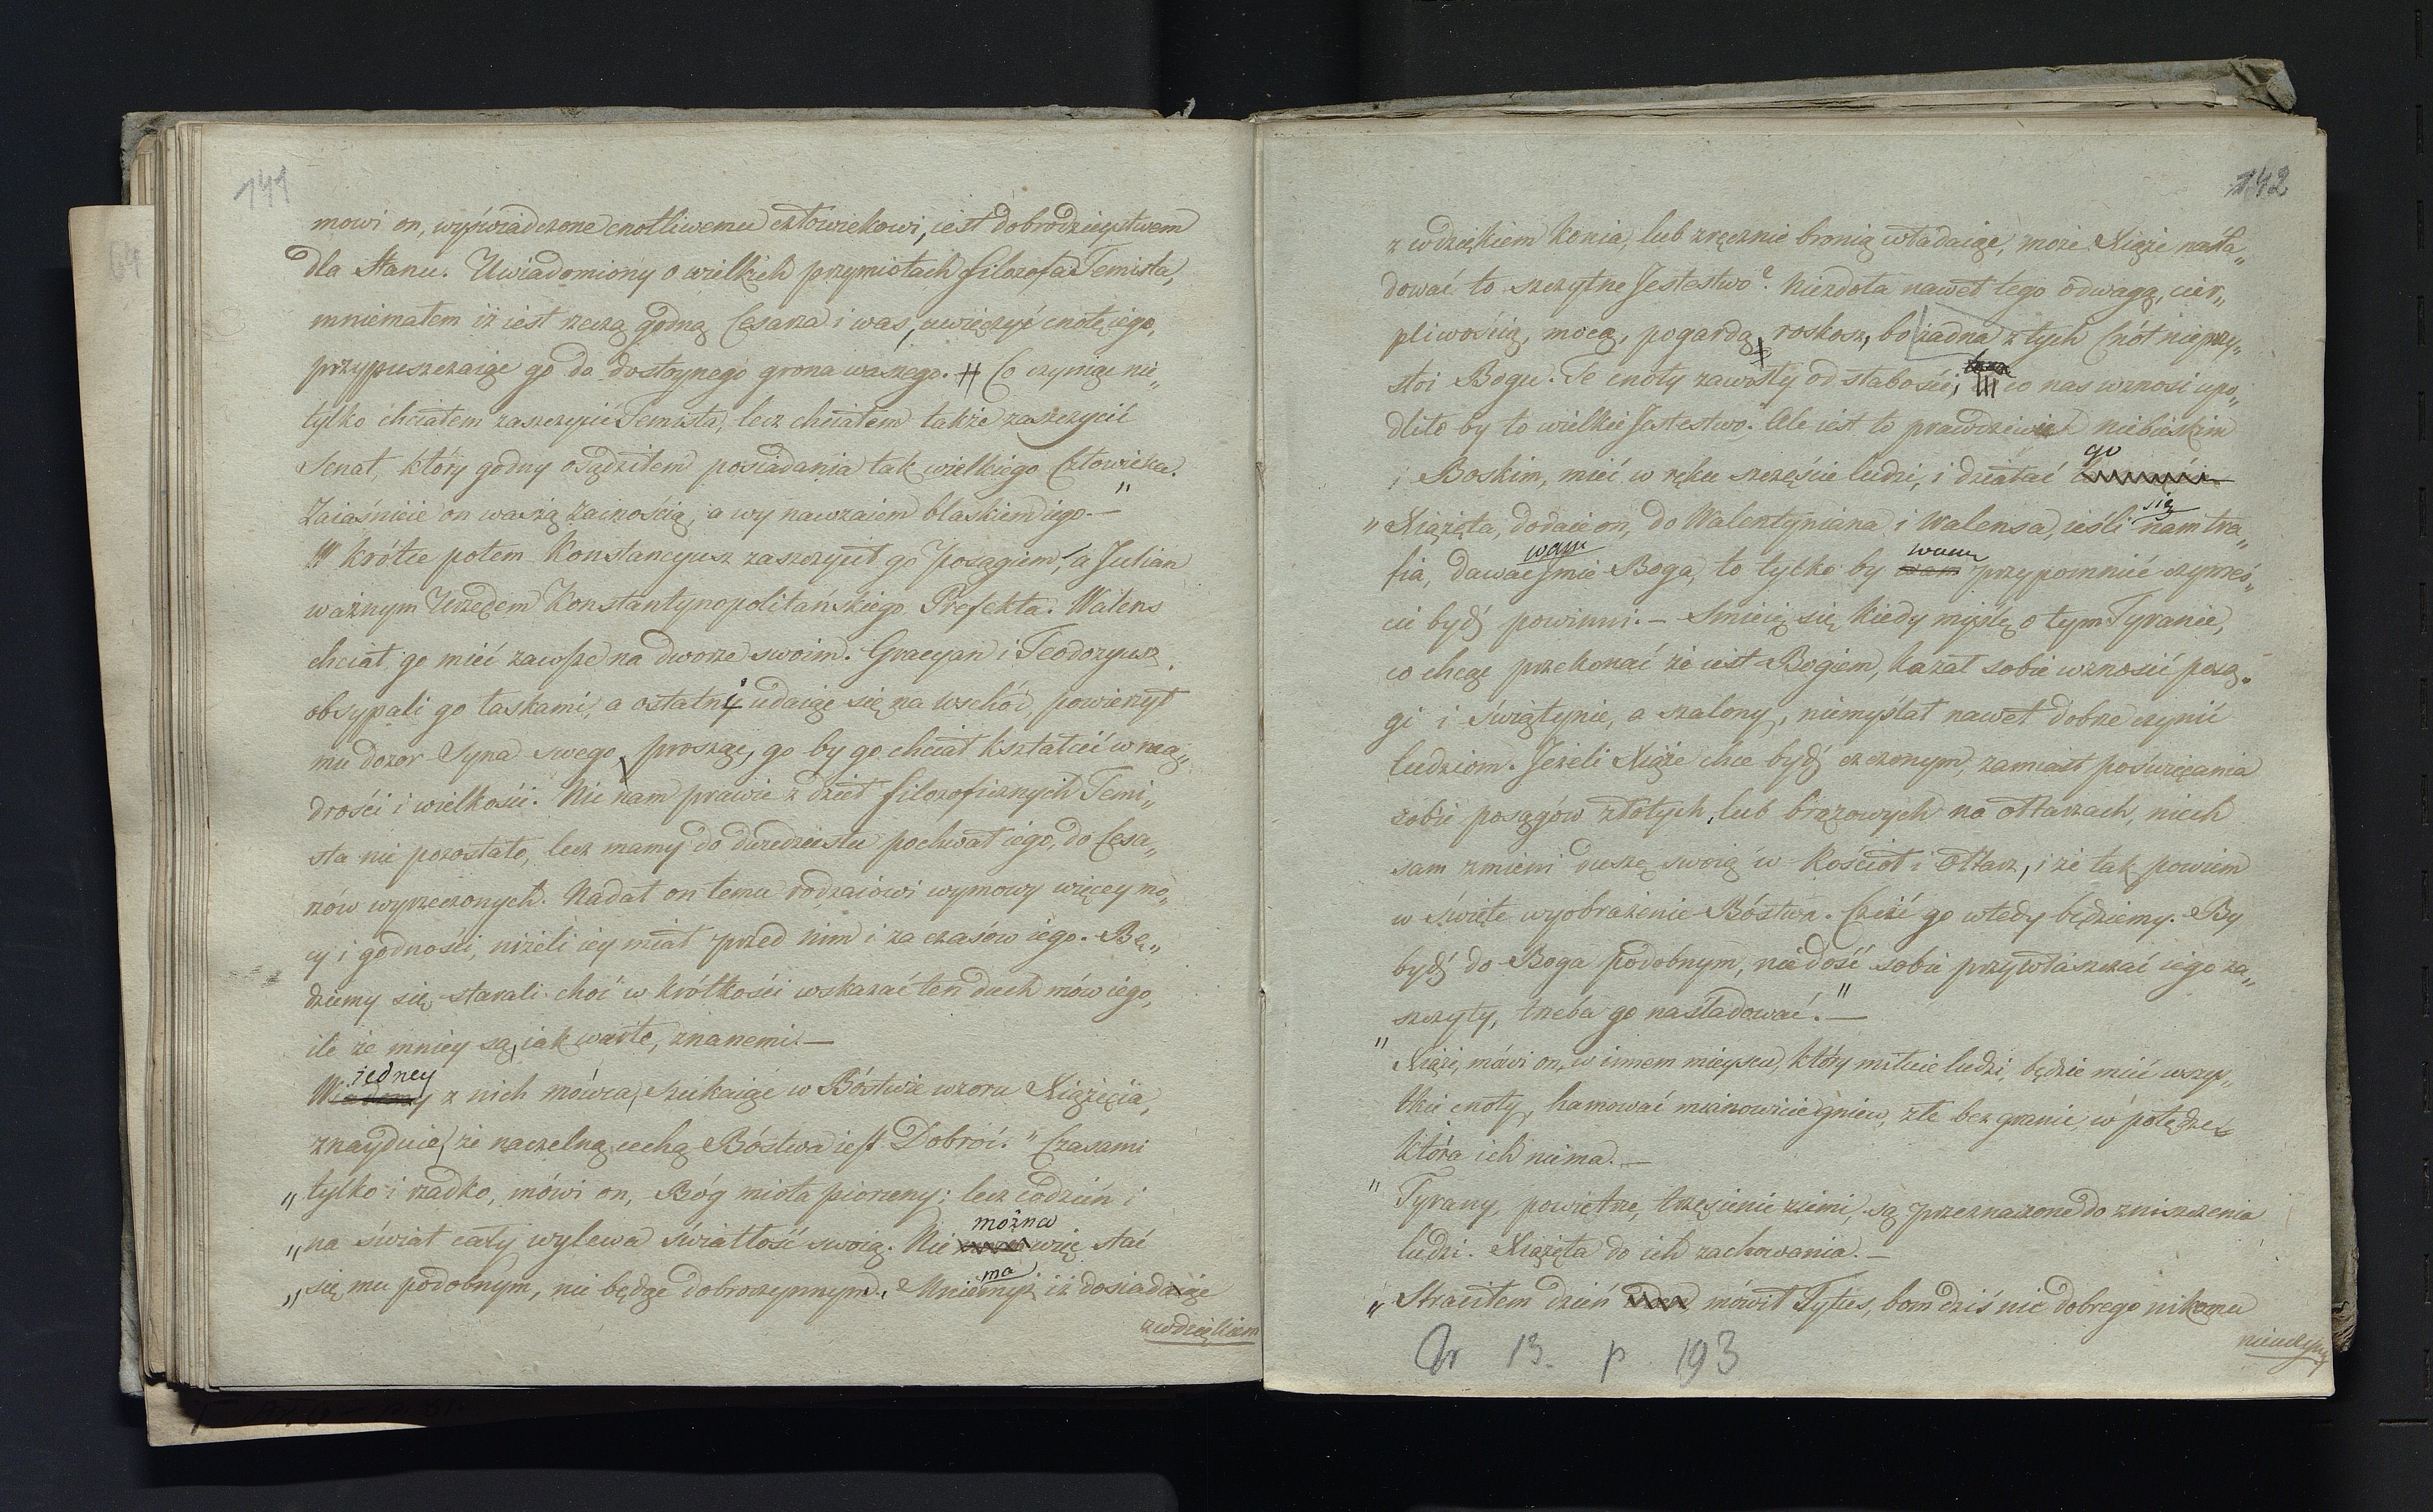 141
mowi on, wyświadczone cnotliwemu człowiekowi, iest dobrodzieystwem
dla Stanu. Uwiadomiony o wielkich przymiotach filozofa Temista,
mniemałem iż iest rzeczą godną Cesarza i was, uwięczyć cnotę iego,
przypuszczaiąc go do dostoynego grona waszego. # Co czyniąc nie„
tylko chciałem zaszczycić Temista, lecz chciałem także zaszczycić
Senat, który godny osądziłem posiadania tak wielkiego Człowieka.
Zaiaśnieie on waszą zacnością, a wy nawzaiem blaskiem iego."—
W krótce potem Konstancyusz zaszczycił go Posągiem, a Julian
ważnym Urzędem Konstantynopolitańskiego Prefekta. Walens
chciał go mieć zawsze na dworze swoim. Gracyan i Teodozyusz
obsypali go łaskami, a ostatni udaiąc się na wschód, powierzył
mu dozor Syna swego, prosząc, go by go chciał kształcić w mą„
drości i wielkości. Nic nam prawie z dzieł filozoficznych Temi„
sta nie pozostało, lecz mamy do dwudziestu pochwał iego, do Cesa„
rzów wyrzeczonych. Nadał on temu rodzaiowi wymowy więcey mo„
cy i godności, niżeli iey miał przed nim i za czasów iego. Bę„
dziemy się starali choć w krótkości wskazać ten duch mów iego,
ile że mniey są, iak warte, znanemi.—
jedney
W z nich mówca, szukaiąc w Bóstwie wzoru Xiążęcia,
znayduie, że naczelną cechą Bóstwa iest Dobroć. "Czasami
„ tylko i rzadko, mówi on, Bóg miota pioruny; lecz codzień i
można
„ na świat cały wylewa światłość swoią. Nie więc stać
ma
„ się mu podobnym, nie będąc dobroczynnym. Mniemyż iż dosiadaiąc
z wdziękiem
142
z wdziękiem konia, lub zręcznie bronią władaiąc, może Xiąże naśla„
dować to szczytne Jestestwo? Niezdoła nawet tego odwagą, cier„
pliwością, mocą, pogardą roskosz, bo żadna z tych Cnót nieprzy„
stoi Bogu. Te cnoty zawisły od słabości; co nas wznosi upo„
dliło by to wielkie Jestestwo. Ale iest to prawdziwie niebieskim
go
i Boskim, mieć w ręku szczęście ludzi, i działać
się
„ Xiążęta, dodaie on, do Walentyniana i Walensa, ieśli nam tra„
wam wam
fia, dawać jmie Boga, to tylko by przypomnieć czymeś„
cie bydź powinni.— Smieię się kiedy myślę o tym Tyranie,
co chcąc przekonać że iest Bogiem, kazał sobie wznosić posą„
gi i świątynie, a szalony, niemyślał nawet dobrze czynić
ludziom. Jeżeli Xiąże chce bydź czczonym, zamiast poświęcania
sobie posągów złotych, lub brązowych na ołtarzach, niech
sam zmieni duszę swoią w Kościoł i Ołtarz, i że tak powiem
w święte wyobrażenie Bóstwa. Czcić go wtedy będziemy. By
bydź do Boga podobnym, niedość sobie przywłaszczać iego za„
szczyty, trzeba go naśladować."—
" Xiąże, mówi on, w innem mieyscu, który miłuie ludzi, będzie mieć wszys„
tkie cnoty, hamować mianowicie gniew, złe bez granic, w potędze
która ich niema.—
" Tyrany, powietrze, trzęsienie ziemi, są przeznaczone do zniszczenia
ludzi. Xiążęta do ich zachowania.—
„ Straciłem dzień mówił Tytus, bom dziś nic dobrego nikomu
nieuczynił
13. p 193